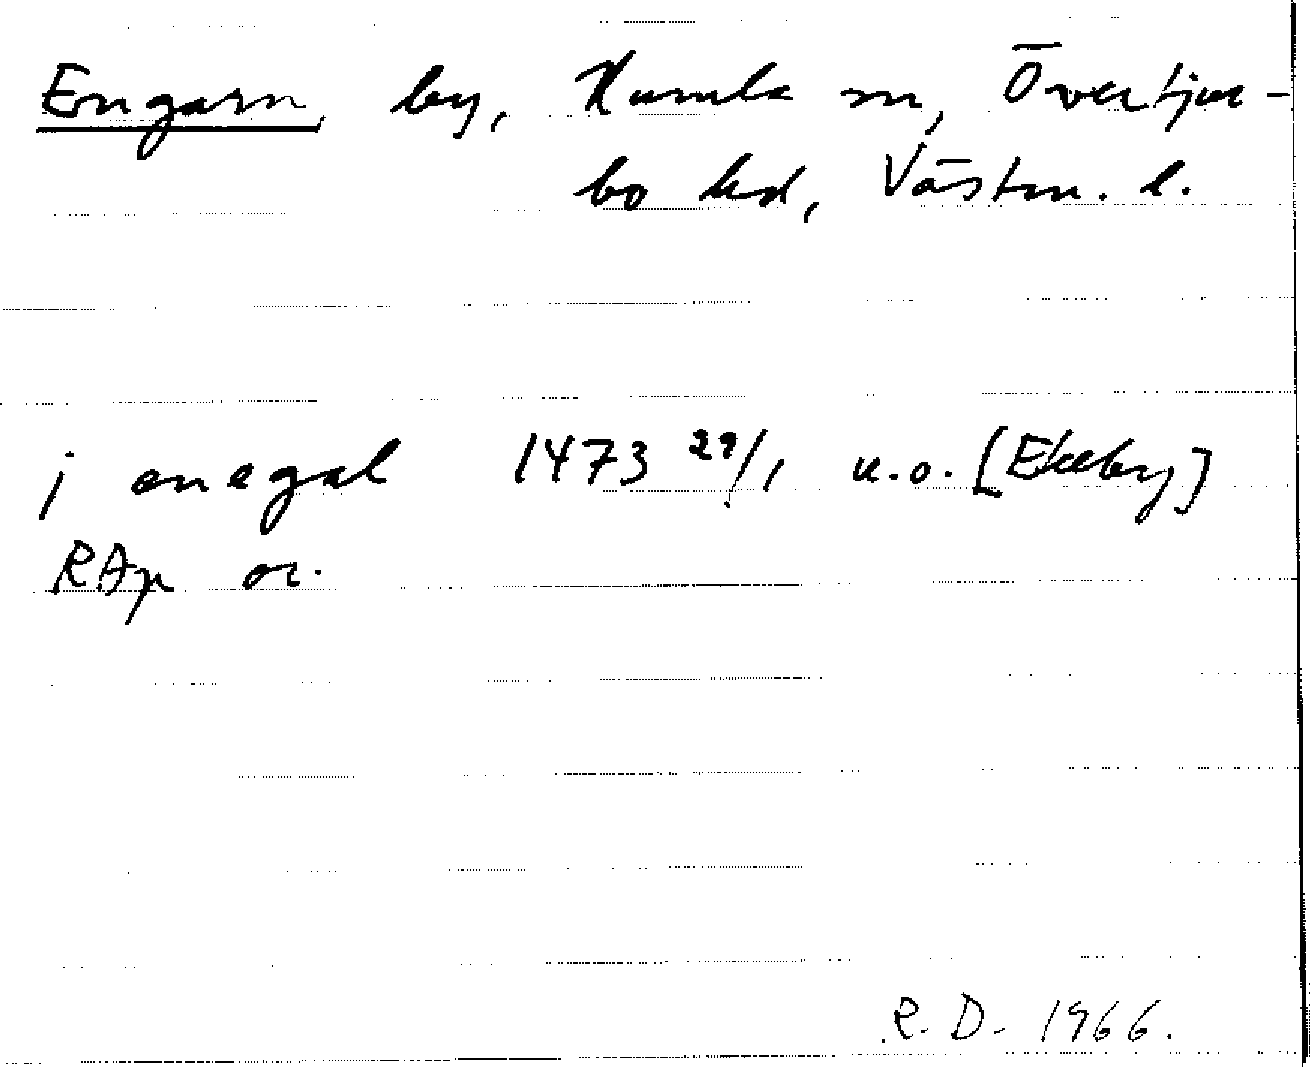 Engarn by, Kumla sn, Övertjur-
bo hd, Västm. l.
j enegal 1473 29/1 u.o. [Ekeby]
RAp or.
R. D. 1966.